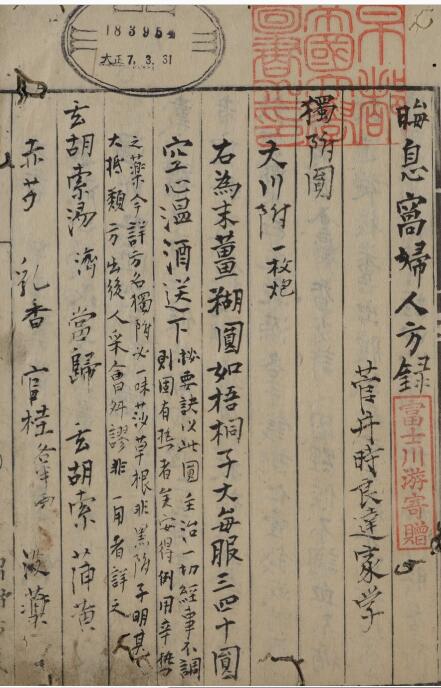 晦息窩婦人方錄
菅井時良達家学
獨附圓
大川附 一枚炮
右為末薑糊圓如梧桐子大每服三四十圓
空心溫酒送下
秘要訣以此圓主治一切經事不調
則固有熱者矣安得例用辛熱
之藥今詳方名獨附必一味莎草根非黑附子明甚
大抵類方出後人采會舛謬非一用者詳之
玄胡索湯 濟 當歸 玄胡索 蒲黄
赤芍 乳香 官桂 各半兩 没藥
富士川游寄贈
183954
大正7.3.31
京都帝國大學圖書之印